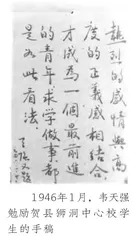 趣到的感情與高
度的正義感相結合，
才成為一個最前進
的青年求学做事都
是如此看法
1946年1月，韦天强
勉励贺县狮洞中心校学
生的手稿